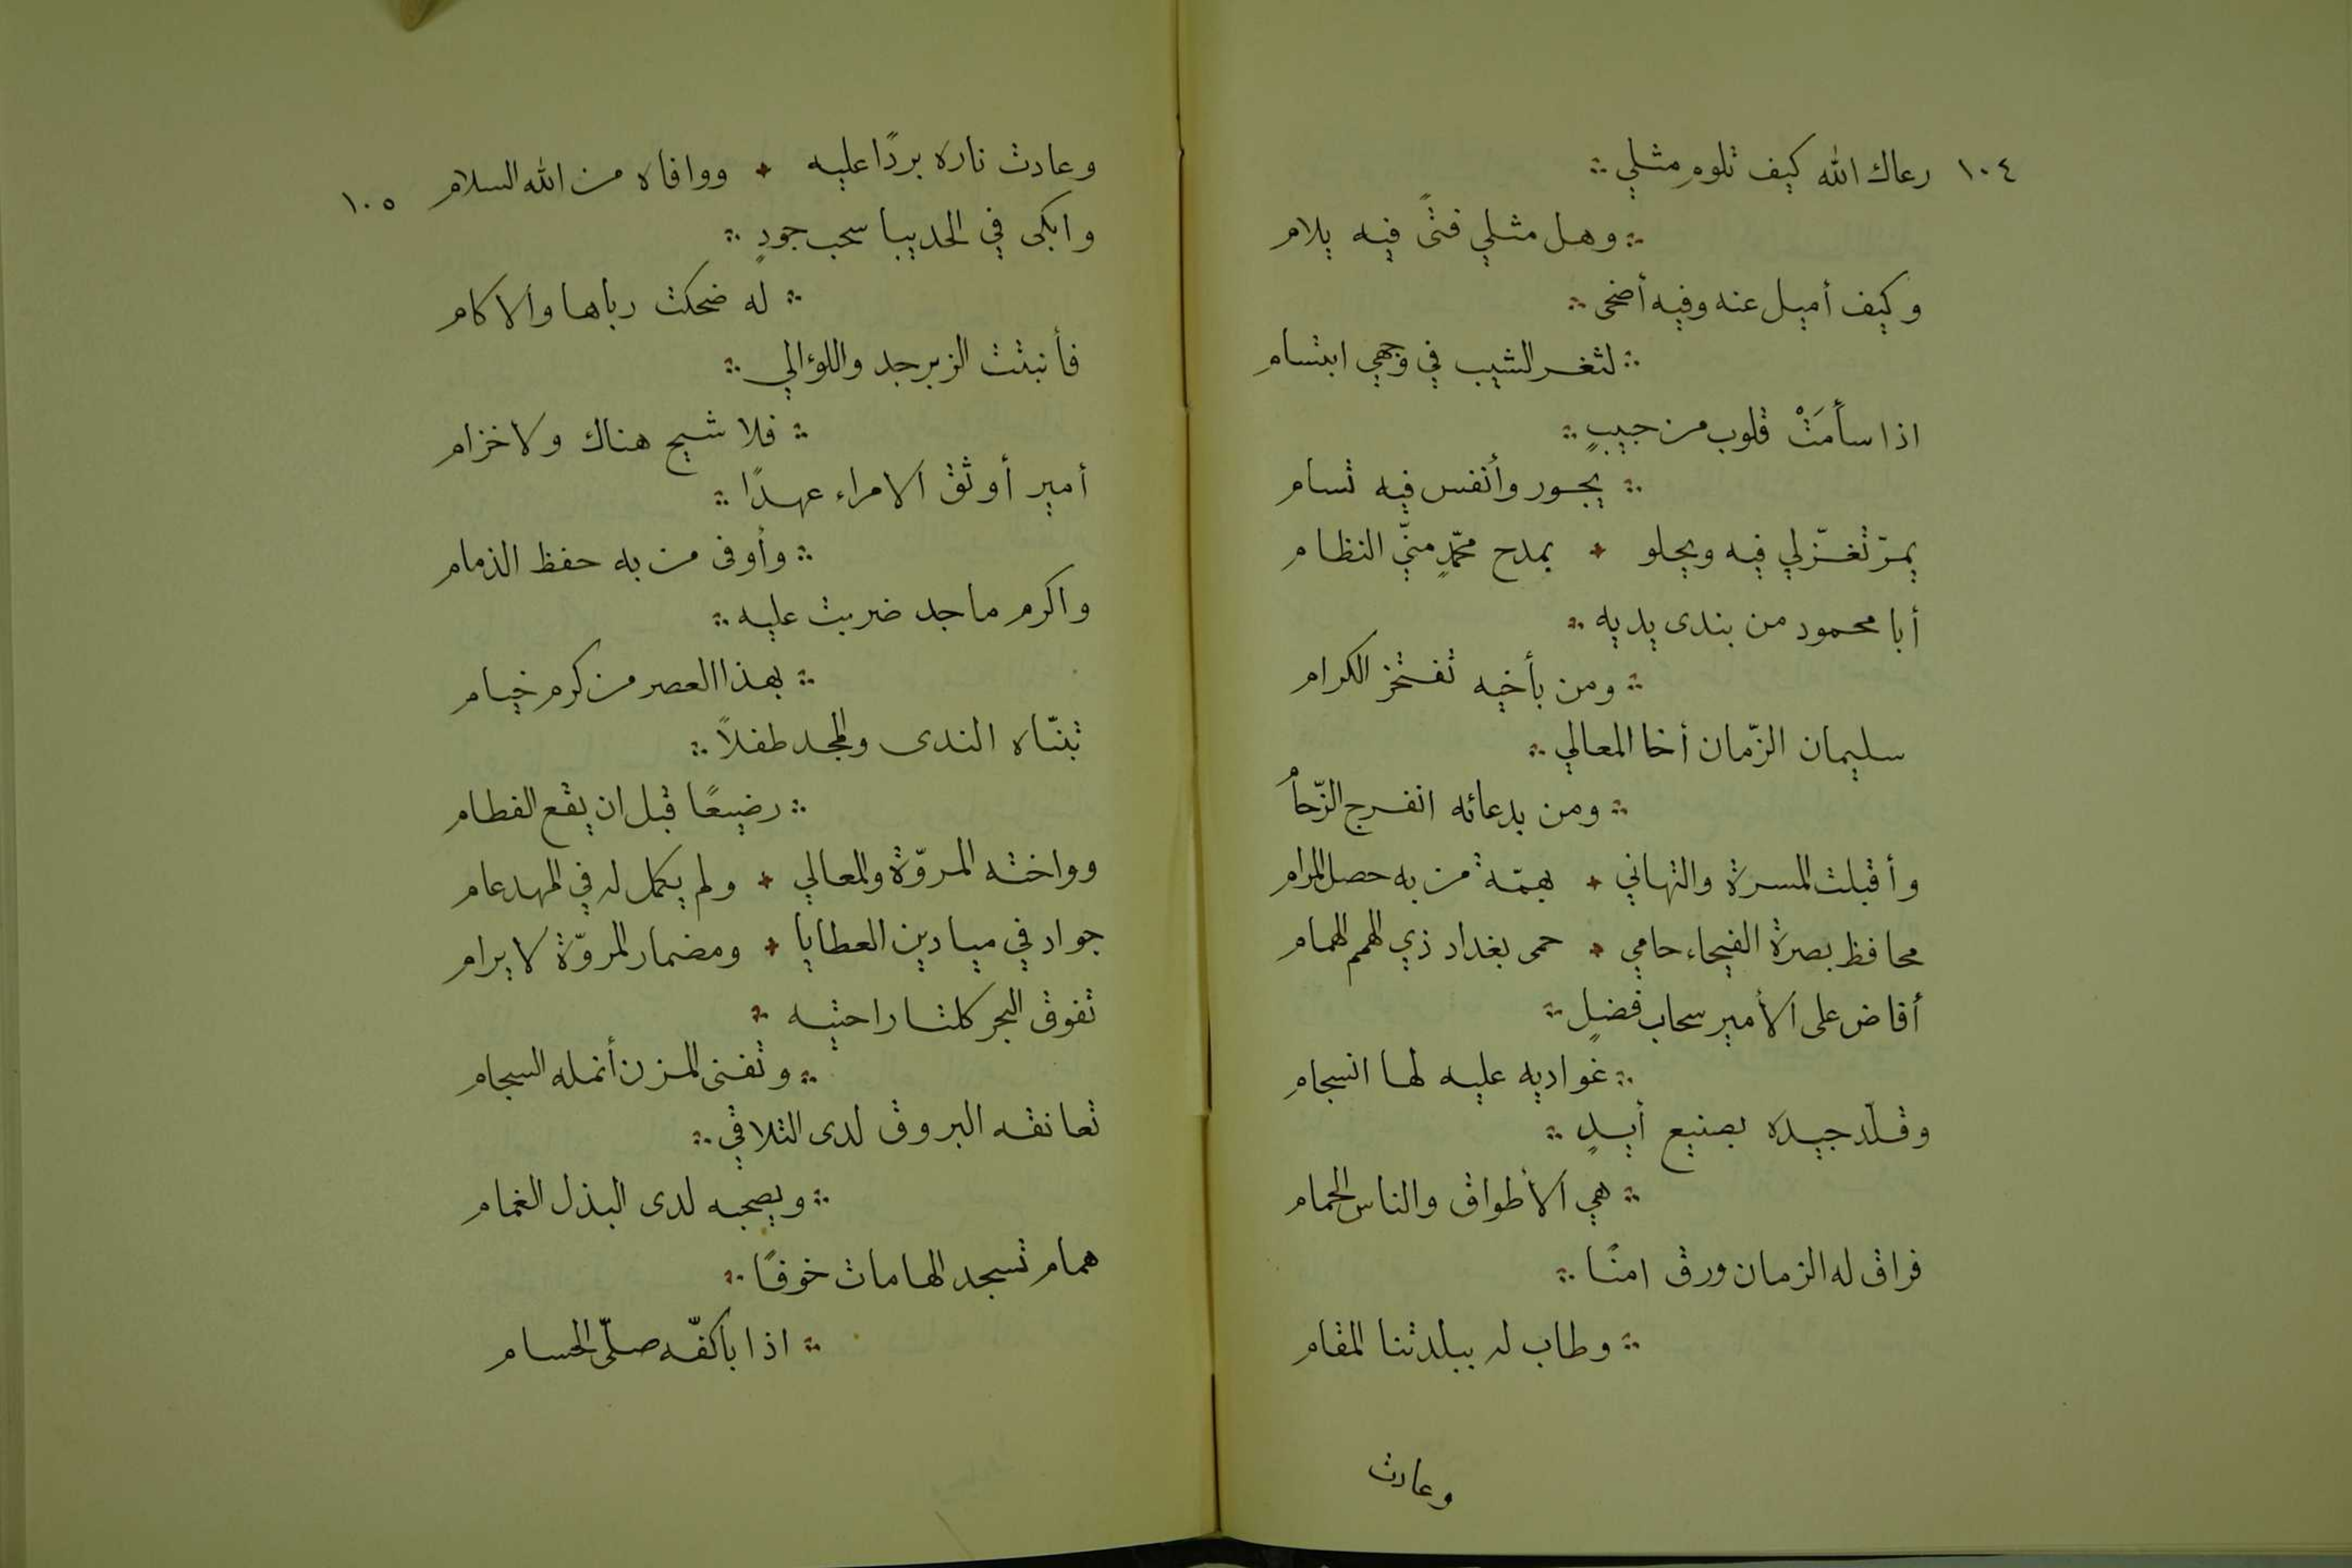 ١٠٤ رعاك الله كيف تلوم مثلي ∴
∴ وهل مثلي فتًى فيه يلام
وكيف أميل عنه وفيه أضحى ∴
∴ لثغر الشيب في وجهي ابتسام
اذا سأمَتْ قلوب من حبيبٍ ∴
∴ يجور وأنفس فيه تسام
يمرّ تغزّلي فيه ويحلو ✦ بمدح محمّدٍ منّي النظام
أبا محمود من بندى يديه ∴
∴ ومن بأخيه تفتخر الكرام
سليمان الزّمان أخا المعالي ∴
∴ ومن بدعائه انفرج الزّحامُ
وأقبلت المسرة والتهاني ✦ بهمّة من به حصل المرام
محافظ بصرة الفيحاء حامي ✦ حمى بغداد ذي الهمم الهمام
أفاض على الأمير سحاب فضلٍ ∴
∴ غواديه عليه لها انسجام
وقلّد جيده بصنيع أيدٍ ∴
∴ هي الأطواق والناس الحمام
فراق له الزمان ورق امنًا ∴
∴ وطاب له ببلدتنا المقام
وعادت
وعادت ناره بردًا عليه ✦ ووافاه من الله السلام ١٠٥
وابكى في الحديبا سحب جودٍ ∴
∴ له ضحكت رباها والاكام
فأنبتت الزبرجد واللؤالي ∴
∴ فلا شيح هناك ولا خزام
أمير أوثق الامراء عهدًا ∴
∴ وأوفى من به حفظ الذمام
واكرم ماجد ضربت عليه ∴
∴ بهذا العصر من كرم خيام
تبنّاه الندى والمجد طفلاً ∴
∴ رضيعًا قبل ان يقع الفطام
وواخته المروّة والمعالي ✦ ولم يكمل له في المهد عام
جواد في ميادين العطايا ✦ ومضمار المروّة لا يرام
تفوق البحر كلتا راحتيه ∴
∴ وتفنى المزن أنمله السجام
تعانقه البروق لدى التلاقي ∴
∴ ويصحبه لدى البذل الغمام
همام تسجد الهامات خوفًا ∴
∴ اذا باكفّه صلّى الحسام